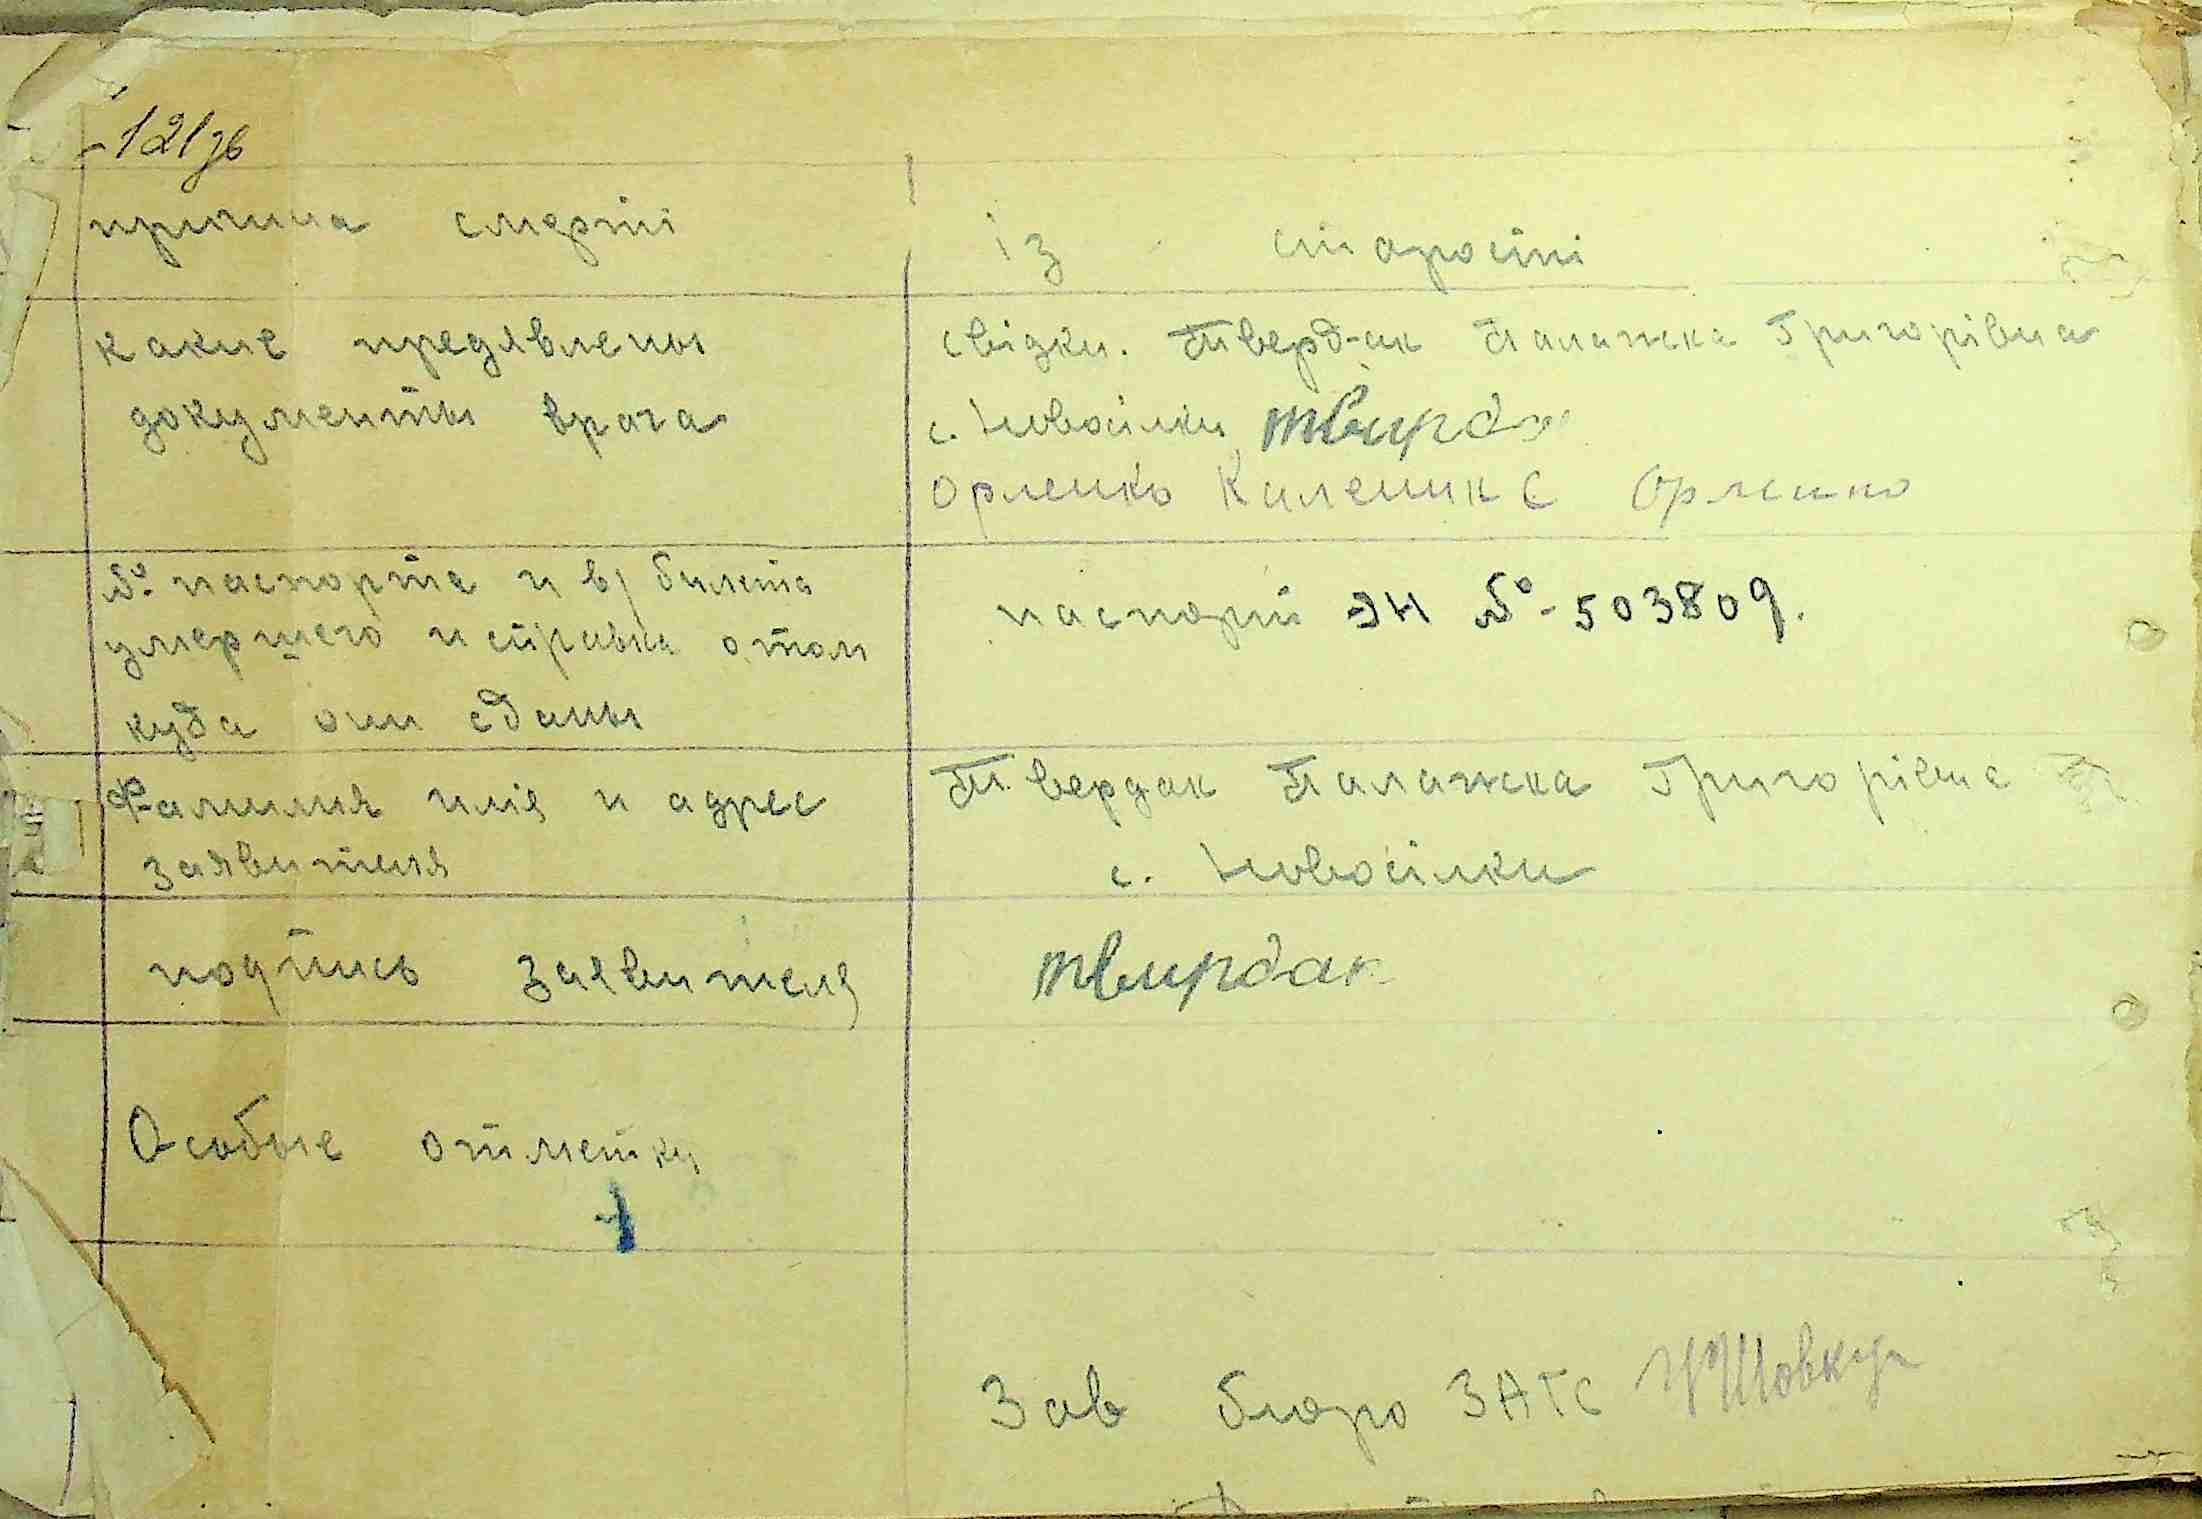 121зв
причина смерті
із старости
какие предявлены
документы врача
свідки. Твердак Палажка Григорівна
с. Новосілки твирдак
Орленко Киленик С Орленко
№ паспорта и в/билета
умершего и справка о том
куда они сданы
паспорт ЭН № - 503809.
Фамилия имія и адрес
заявителя
Твердак Палажка Григорівна
с. Новосілки
подпись заявителя
твирдак
Особые отметки
Зав бюро ЗАГС Шовкун